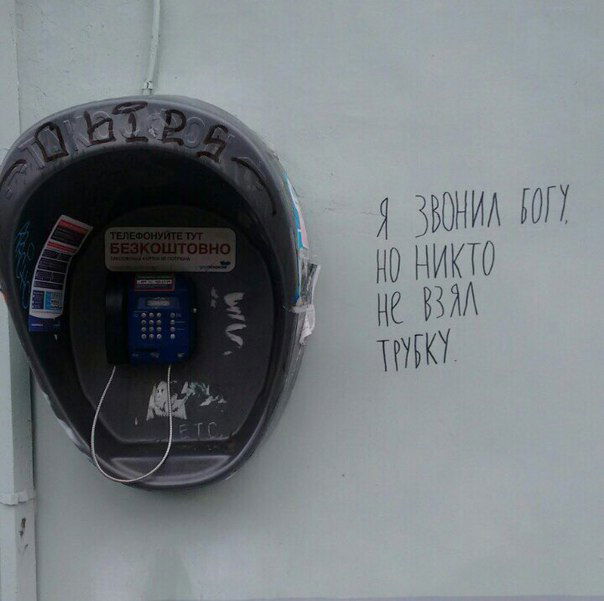 ТЕЛЕФОНУЙТЕ ТУТ
БЕЗКОШТОВНО
ETC
Я ЗВОНИЛ БОГУ,
НО НИКТО
НЕ ВЗЯЛ
ТРУБКУ.